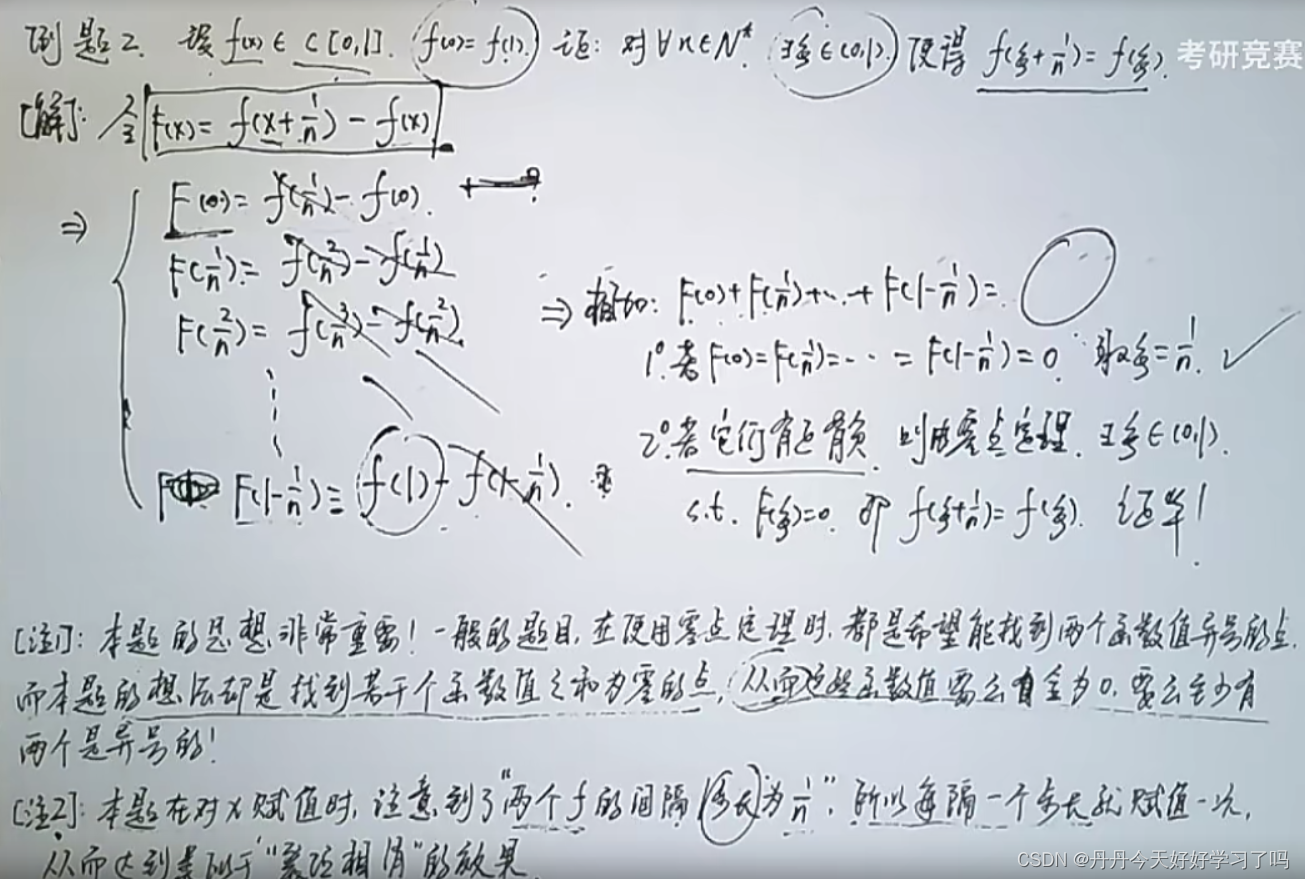 例题2. 设 f(x)∈C[0,1]. f(0)=f(1). 证: 对∀n∈N*. ∃ξ∈(0,1). 使得 f(ξ+1/n)=f(ξ). 考研竞赛
[解]: 令 F(x)= f(x+1/n)-f(x)
⇒ F(0)= f(1/n)-f(0).
F(1/n)= f(2/n)-f(1/n)
F(2/n)= f(3/n)-f(2/n)
F(1-1/n)= f(1)-f(1-1/n).
⇒ 相加: F(0)+F(1/n)+…+F(1-1/n)=0
1° 若 F(0)=F(1/n)=…=F(1-1/n)=0. 取ξ=1/n. ✓
2° 若它们有正有负. 则由零点定理. ∃ξ∈(0,1).
s.t. F(ξ)=0. 即 f(ξ+1/n)=f(ξ). 证毕!
[注1]: 本题的思想非常重要! 一般的题目, 在使用零点定理时, 都是希望能找到两个函数值异号的点.
而本题的想法却是找到若干个函数值之和为零的点, 从而这些函数值要么有全为0, 要么至少有
两个是异号的!
[注2]: 本题在对x赋值时, 注意到了"两个f的间隔(步长)为1/n", 所以每隔一个步长就赋值一次,
从而达到类似于"裂项相消"的效果.
CSDN @丹丹今天好好学习了吗